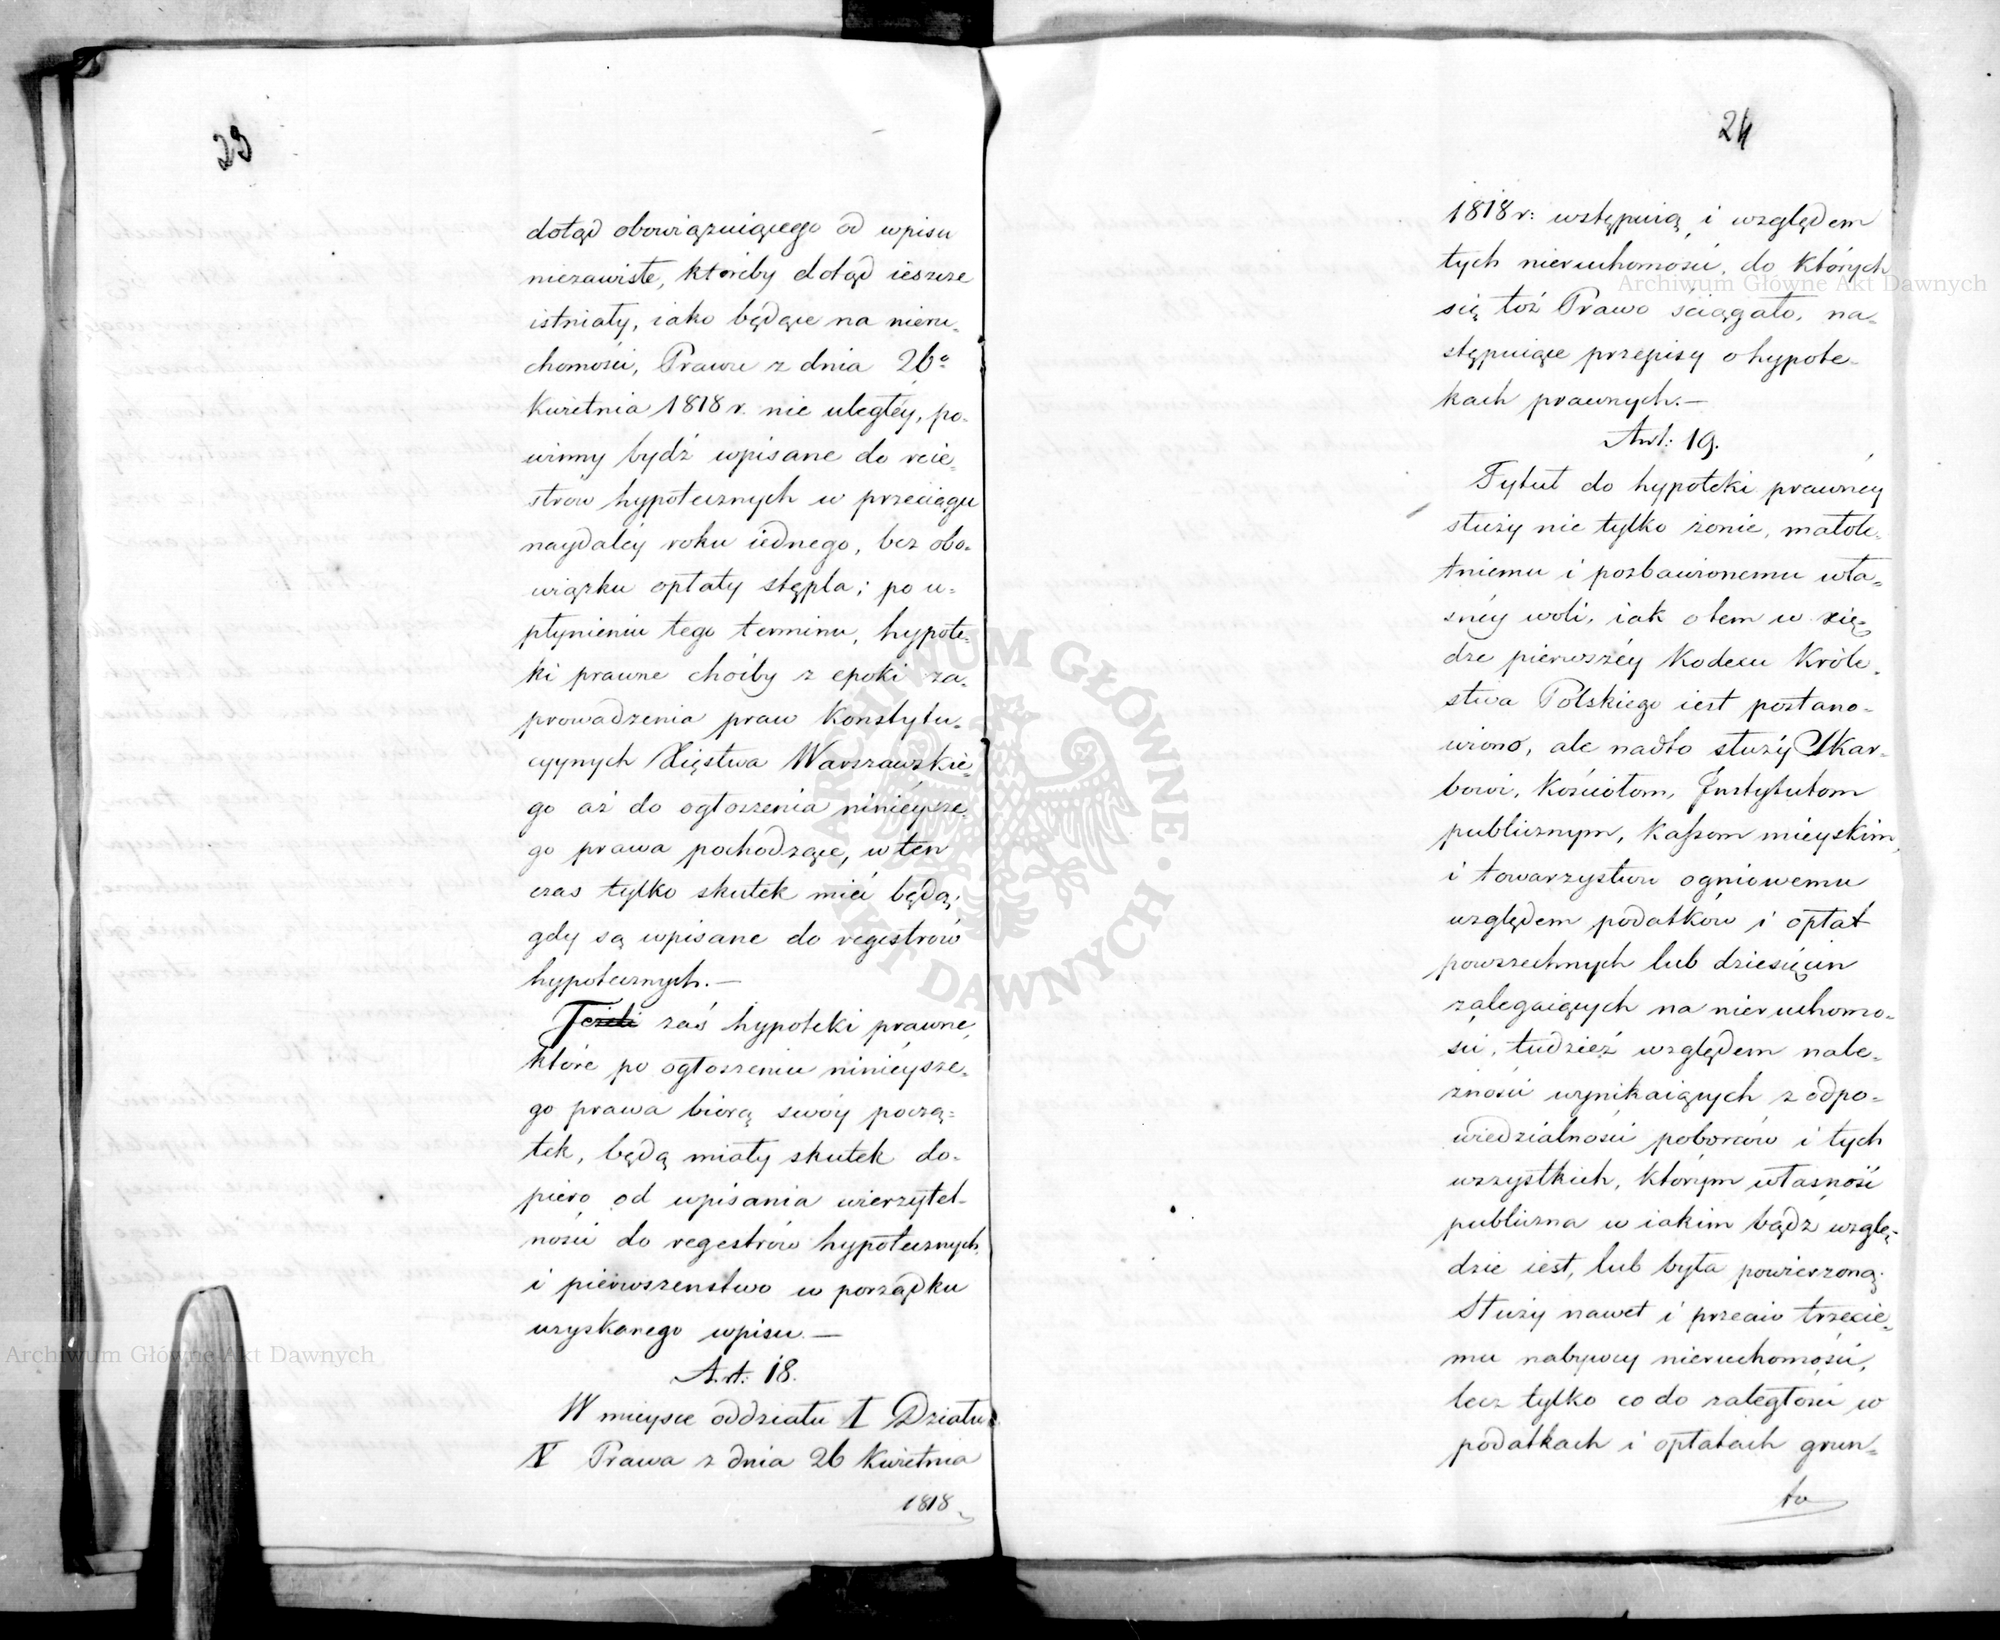 dotąd obowiązuiącego od wpisu
niezawisłe, któreby dotąd ieszcze
istniały, iako będące na nieru-
chomości, Prawu z dnia 26º
Kwietnia 1818 r. nie uległéy, po-
winny bydź wpisane do reie-
strów hypotecznych w przeciągu
naydaléy roku iednego, bez obo-
wiązku opłaty stępla; po u-
płynieniu tego terminu, hypote-
ki prawne choćby z epoki za-
prowadzenia praw Konstytu-
cyynych Xięstwa Warszawskie-
go aż do ogłoszenia ninieysze-
go prawa pochodzące, w ten
czas tylko skutek mieć będą,
gdy są wpisane do regestrów
hypotecznych.—
Jeżeli zaś hypoteki prawne,
które po ogłoszeniu ninieysze-
go prawa biorą swóy począ-
tek, będą miały skutek do-
piero od wpisania wierzytel-
ności do regestrów hypotecznych
i pierwszenstwo w porządku
uzyskanego wpisu.—
Art: 18.
W mieysce oddziału I Działu
IV Prawa z dnia 26 Kwietnia
1818
24
1818 r: wstępuią i względem
tych nieruchomości, do których
się toż Prawo ściągało, na-
stępuiące przepisy o hypote-
kach prawnych.—
Art: 19.
Tytuł do hypoteki prawnéy
służy nie tylko żonie, małole-
tniemu i pozbawionemu wła-
snéy woli, iak o tem w xię-
dze pierwszéy Kodexu Króle-
stwa Polskiego iest postano-
wiono, ale nadto służy Skar-
bowi, Kościołom, Instytutom
publicznym, Kassom mieyskim,
i towarzystwu ogniowemu
względem podatków i opłat
powszechnych lub dziesięcin
zalegaiących na nieruchomo-
ści, tudzież względem nale-
żności wynikaiących z odpo-
wiedzialności poborców i tych
wszystkich, którym własność
publiczna w iakim bądź wzglę-
dzie iest, lub była powierzoną.
Służy nawet i przeciw trzecie-
mu nabywcy nieruchomości,
lecz tylko co do zaległości w
podatkach i opłatach grun-
to
Archiwum Główne Akt Dawnych
Archiwum Główne Akt Dawnych
ARCHIWUM GŁÓWNE · AKT DAWNYCH ·